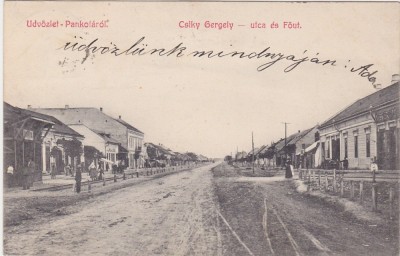 Üdvözlet-Pankotáról. Csiky Gergely — utca és Főút.
üdvözlünk mindnyáján : Ada